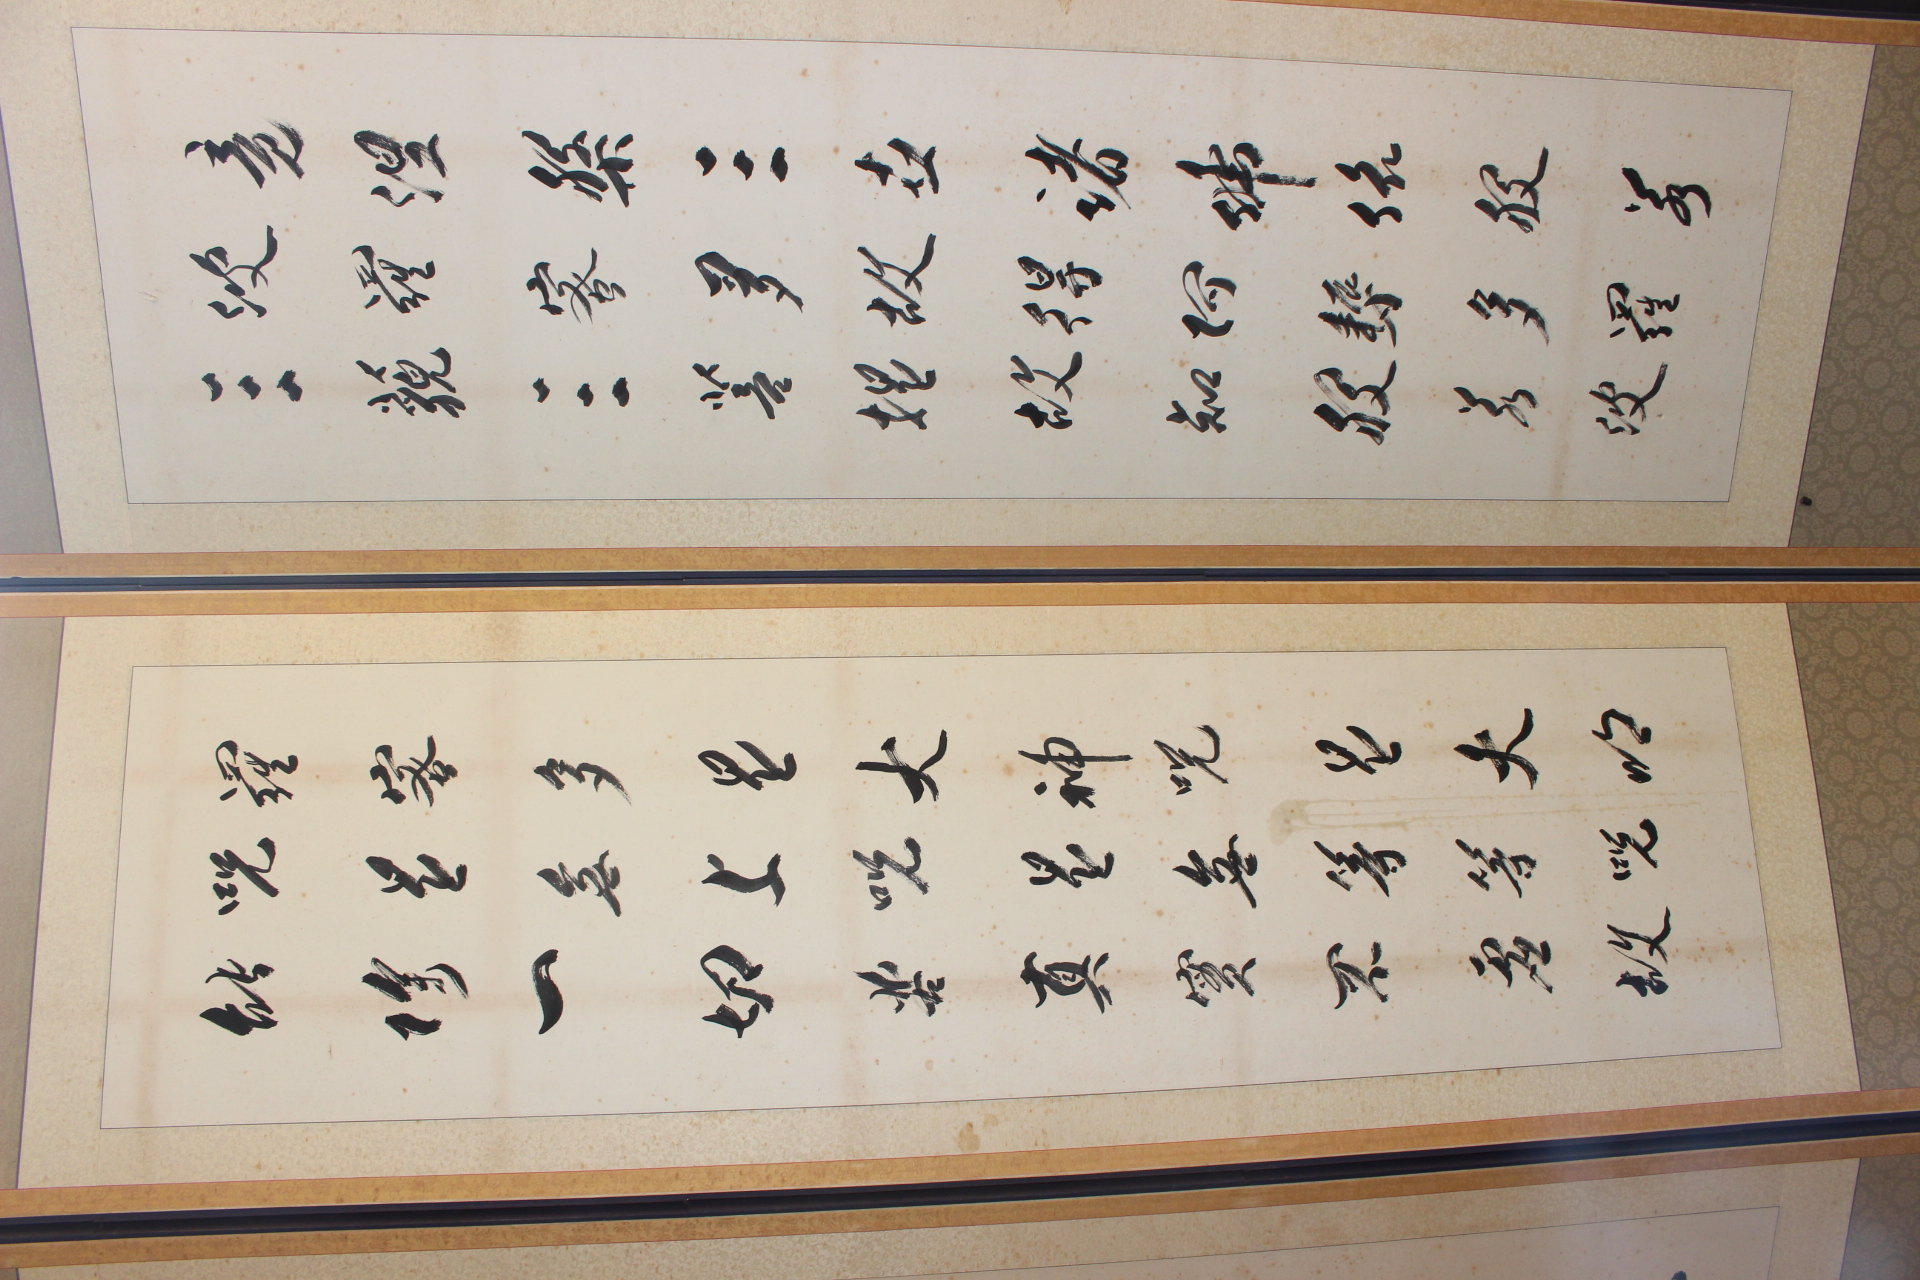 竟涅槃三世諸佛依般若
波羅蜜多故得阿耨多羅
三藐三菩提故知般若波
羅蜜多是大神呪是大明
呪是無上呪是無等等呪
能除一切苦真實不虛故